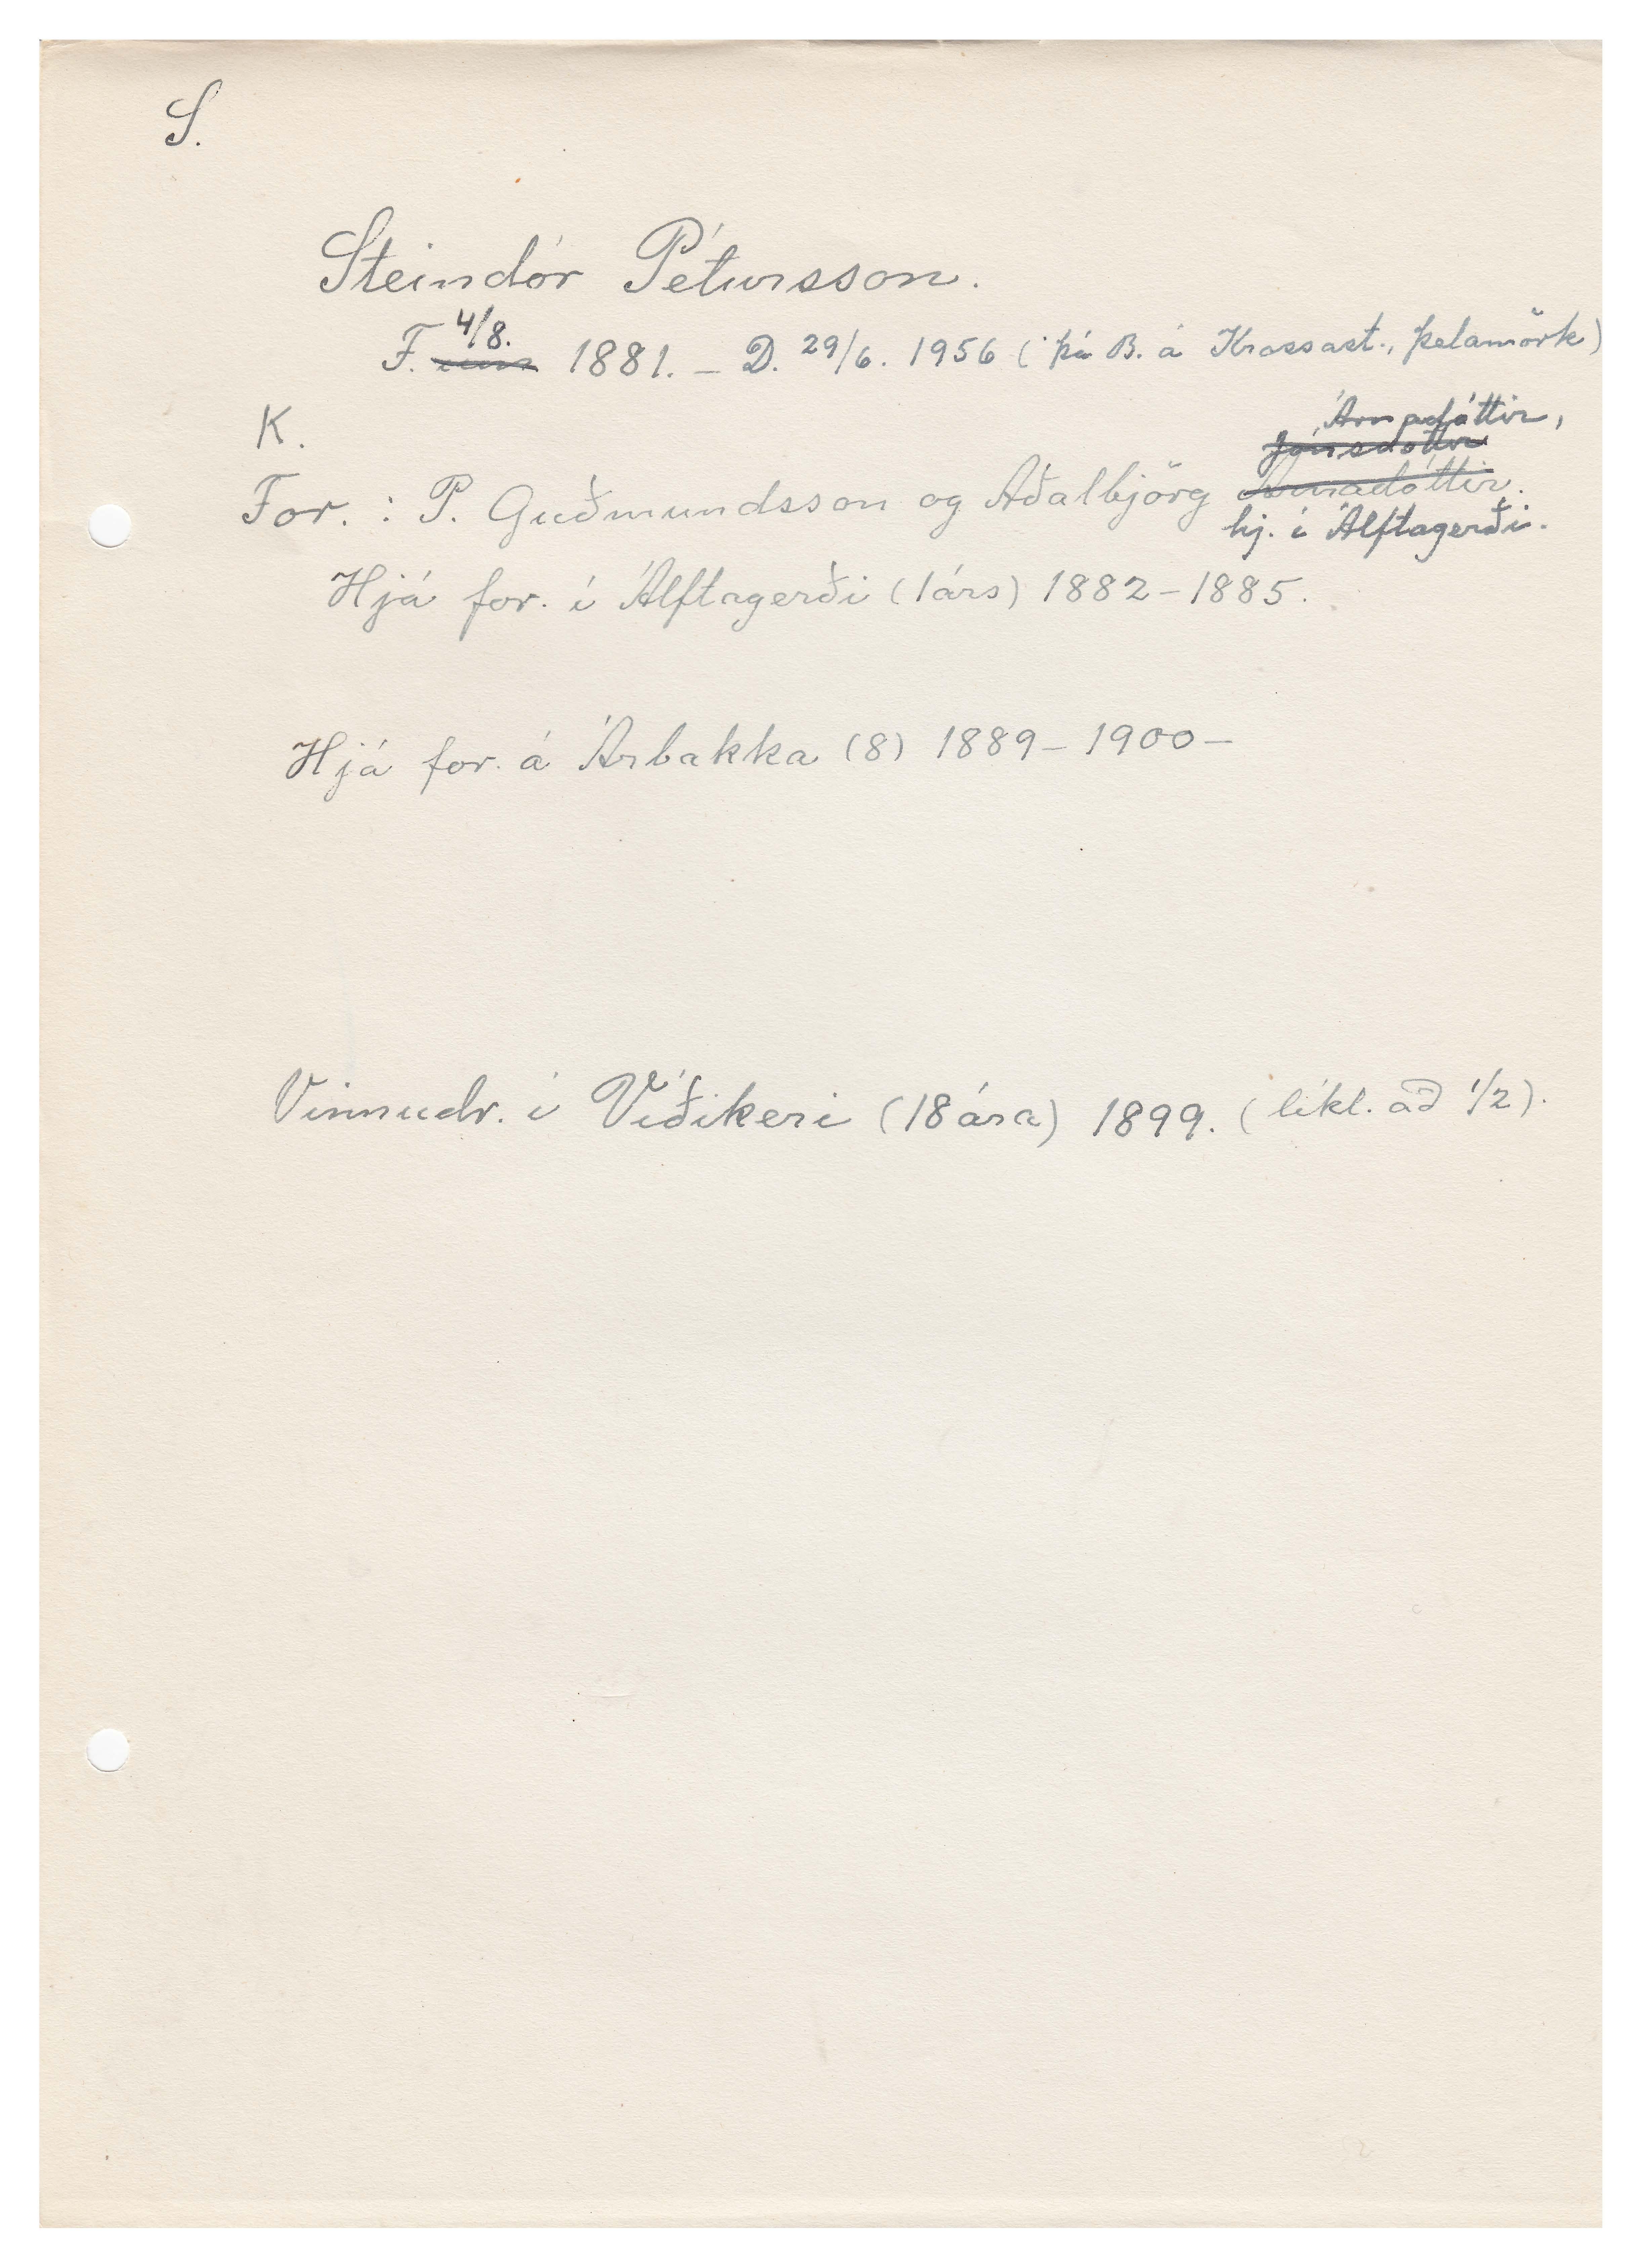 S.
Steindór Pétursson.
4/8.
F. um 1881. – D. 29/6. 1956 (þá B. á Krossast., Þelamörk)
K.
Árnadóttir,
Jónsdóttir
For. : P. Guðmundsson og Aðalbjörg Árnadóttir.
hj. í Álftagerði.
Hjá for. í Álftagerði (1árs) 1882–1885.
Hjá for. á Árbakka (8) 1889–1900–
Vinnudr. í Víðikeri (18 ára) 1899. (líkl. að 1/2).